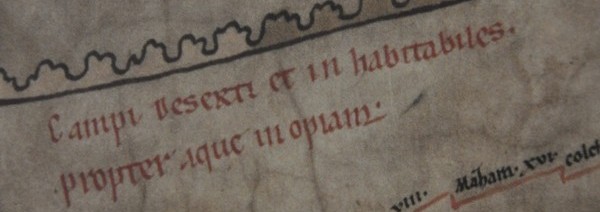 Campi deserti et in habitabiles.
propter aque in opiam:
xviii. Maham. xvi. colch